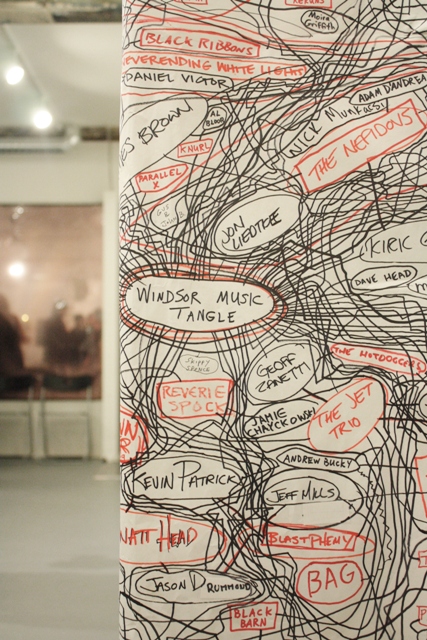 Moira
Griffith
BLACK RIBBONS
EVERENDING WHITE LIGHTS
DANIEL VICTOR
ADAM D'ANDREA
BROWN
AL
NICK MUNKASSI
THE NEFIDOVS
KNURL
PARALLEL
X
JON
LIEDTKE
KIRIC
DAVE HEAD
WINDSOR MUSIC
TANGLE
SKIPPY
SPENCE
GEOFF
ZANETTI
THE HOTDOGGERS
REVERIE
SPOCK
THE JET
TRIO
JAMIE
ANDREW BUCKY
KEVIN PATRICK
JEFF MILLS
HEAD
BLASTPHEMY
JASON DRUMMOND
BAG
BLACK
BARN